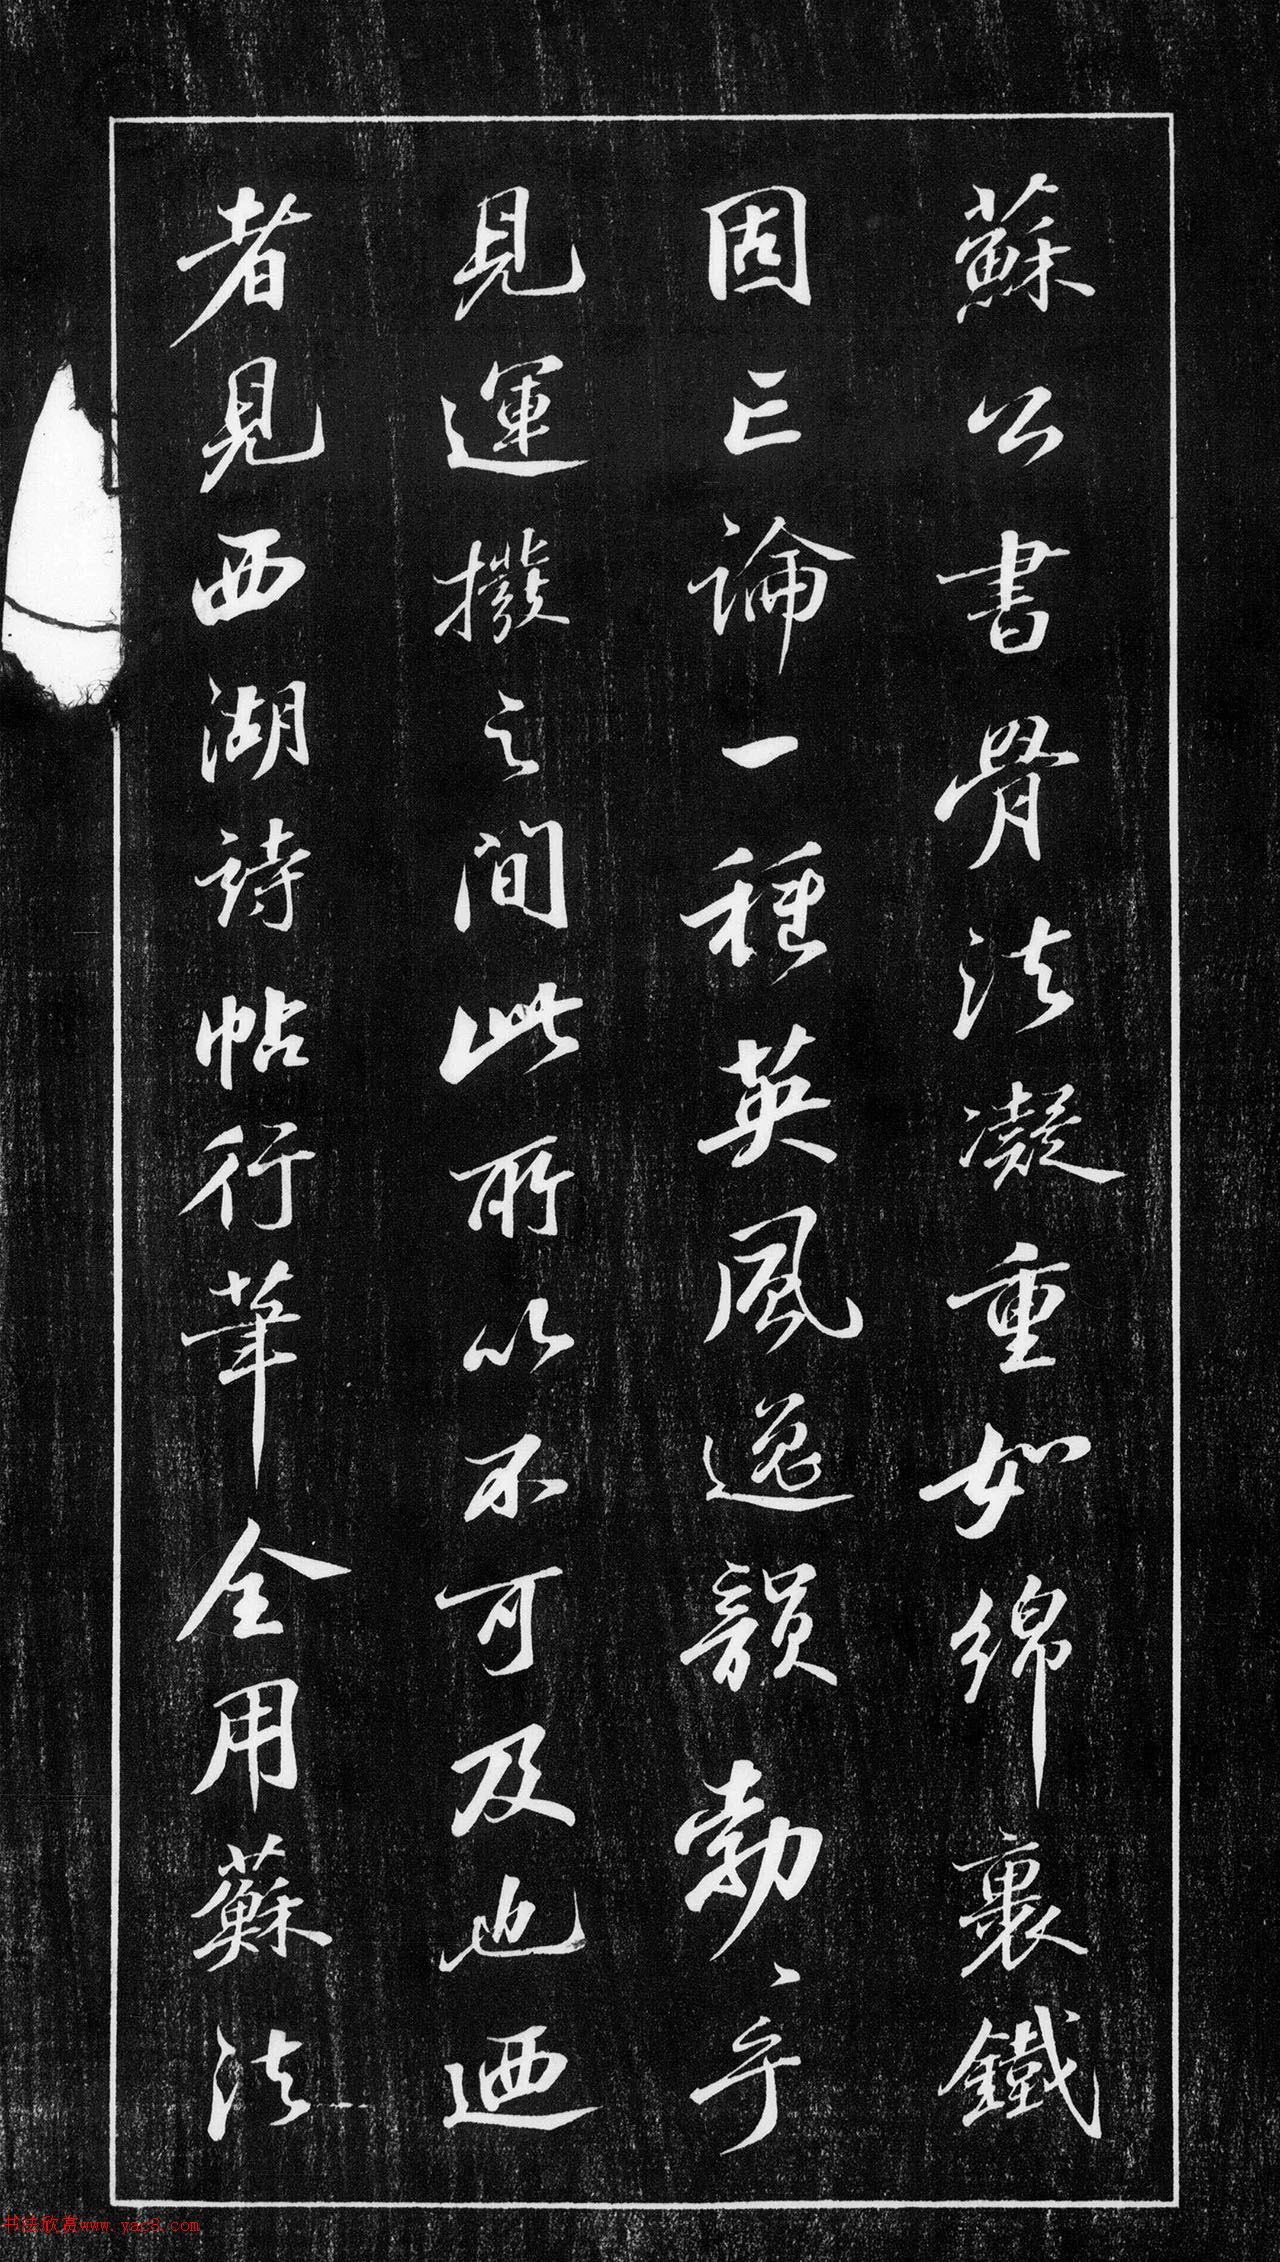 蘇公書骨法凝重如綿裹鐵
固已論一種英風逸韻勃〻乎
見運撥之间此所以不可及也迺
者見西湖詩帖行筆全用蘇法
书法欣赏www.yac8.com